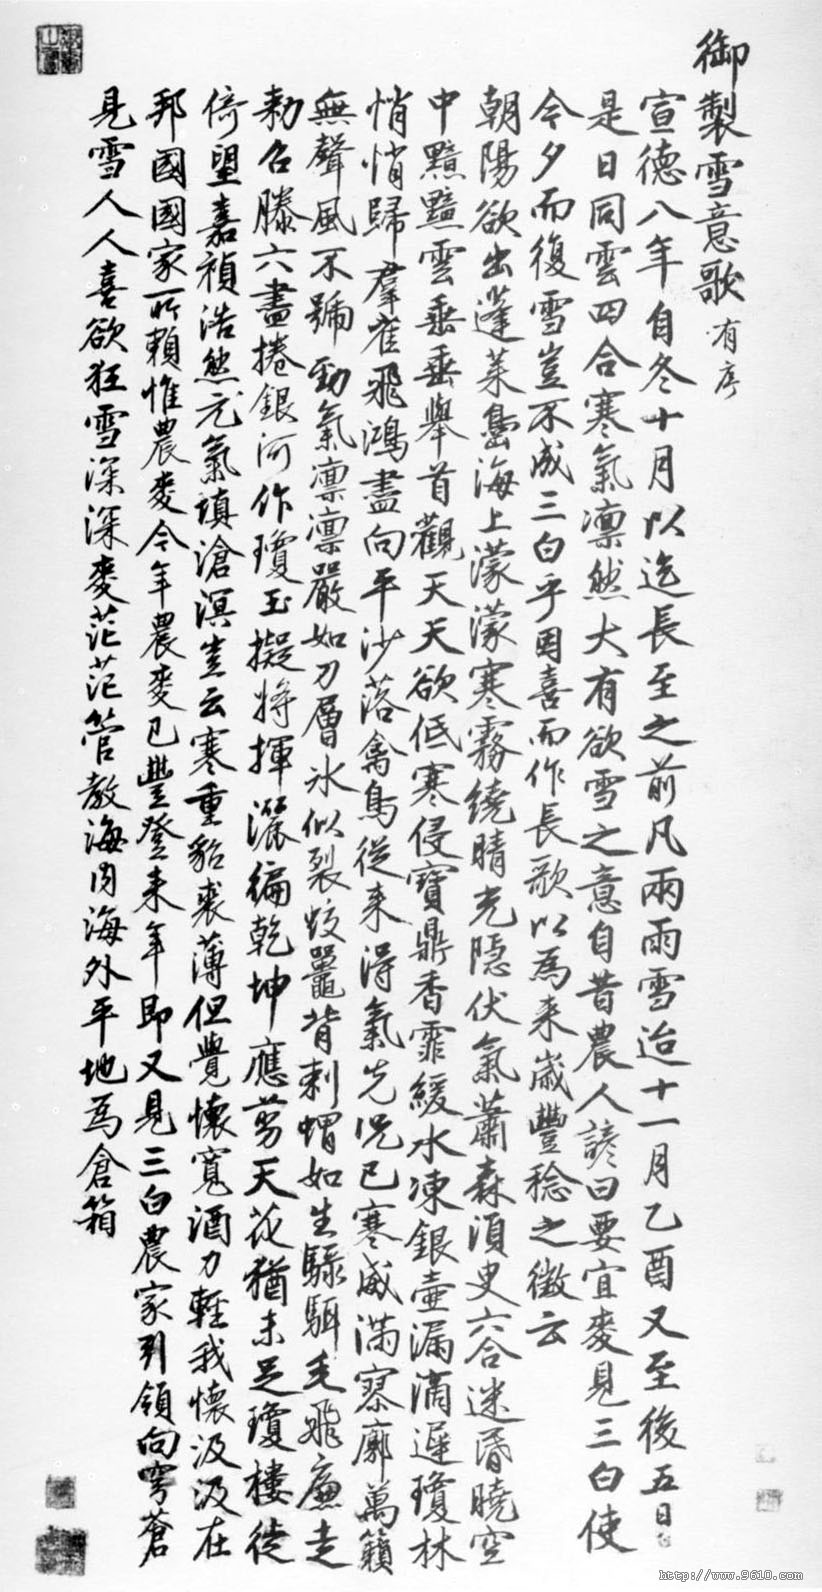 御製雪意歌 有序
宣德八年自冬十月以迄長至之前凡兩雨雪迨十一月乙酉又至後五日
是日同雲四合寒氣凛然大有欲雪之意自昔農人諺曰要宜麥見三白使
今夕而復雪豈不成三白乎因喜而作長歌以為來歲豐稔之徵云
朝陽欲出蓬萊島海上濛濛寒霧繞晴光隱伏氣蕭森須臾六合迷昏曉空
中黯黯雲垂垂舉首觀天天欲低寒侵寶鼎香霏緩水凍銀壺漏滴遲瓊林
悄悄歸羣雀飛鴻盡向平沙落禽鳥從來得氣先況已寒威滿寥廓萬籟
無聲風不號勁氣凛凛嚴如刀層冰似裂蛟鼉背刺蝟如生騄駬毛飛廉走
勑召滕六盡捲銀河作瓊玉擬將揮灑徧乾坤應剪天花猶未足瓊樓徙
倚望嘉禎浩然元氣填滄溟豈云寒重貂裘薄但覺懷寬酒力輕我懷汲汲在
邦國國家所賴惟農麥今年農麥已豐登來年即又見三白農家引領向穹蒼
見雪人人喜欲狂雪深深麥茫茫管教海內海外平地為倉箱
http://www.9610.com